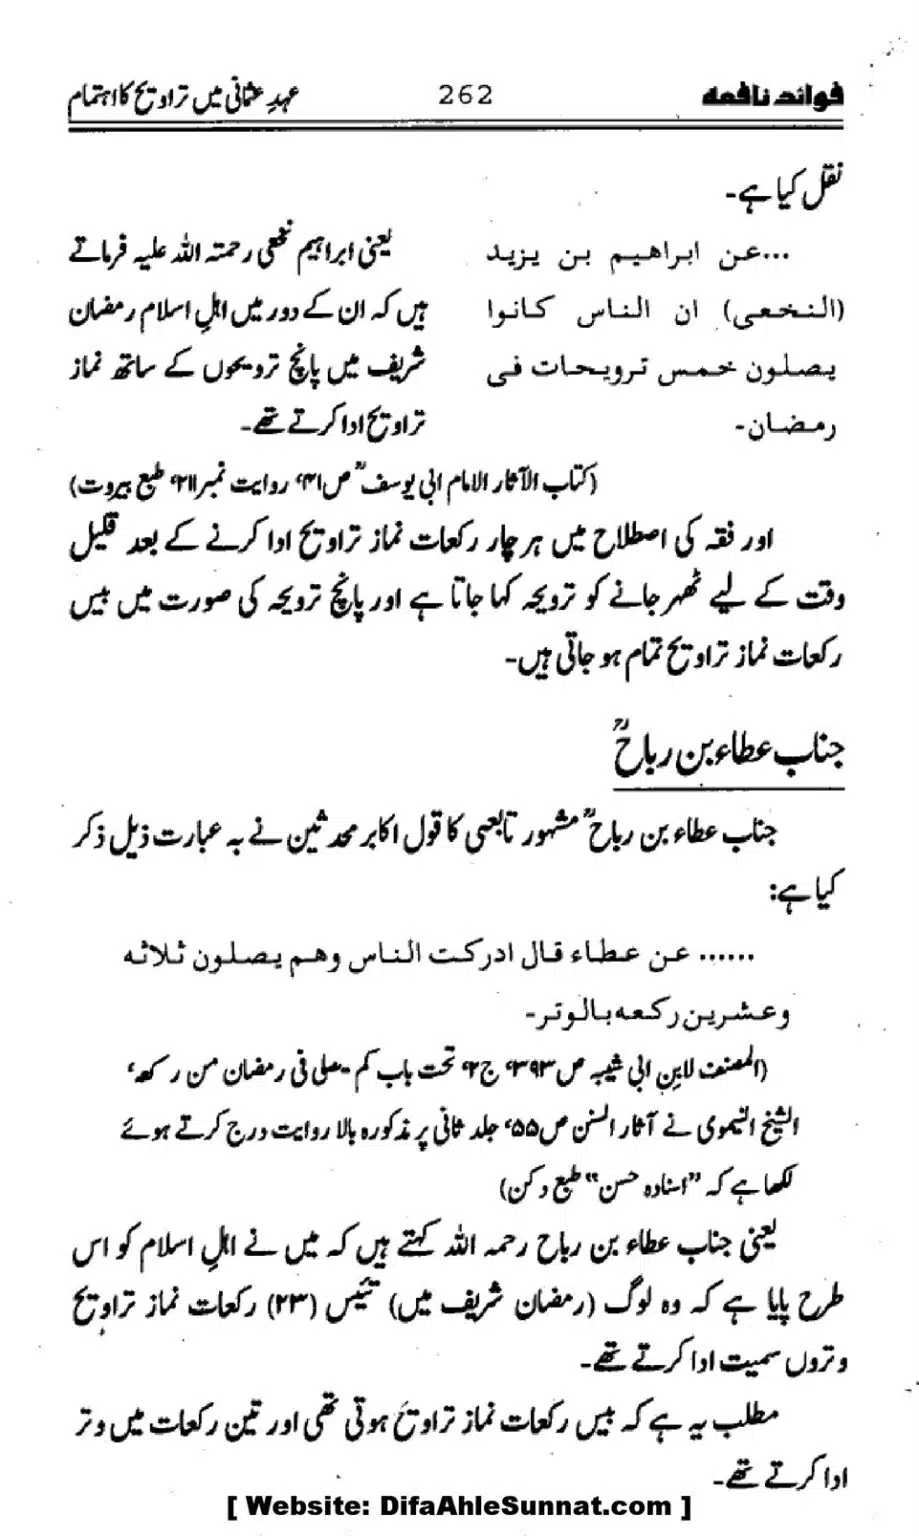 فوائد نافعہ 262 عہدِ عثمانی میں تراویح کا اہتمام
نقل کیا ہے۔
...عن ابراهیم بن یزید
(النخعی) ان الناس کانوا
یصلون خمس ترویحات فی
رمضان۔
یعنی ابراہیم نخعی رحمتہ اللہ علیہ فرماتے
ہیں کہ ان کے دور میں اہلِ اسلام رمضان
شریف میں پانچ ترویحوں کے ساتھ نماز
تراویح ادا کرتے تھے۔
(کتاب الآثار الامام ابی یوسفؒ ص۴۱، روایت نمبر۲۱۱، طبع بیروت)
اور فقہ کی اصطلاح میں ہر چار رکعات نماز تراویح ادا کرنے کے بعد قلیل
وقت کے لیے ٹھہر جانے کو ترویحہ کہا جاتا ہے اور پانچ ترویحہ کی صورت میں بیس
رکعات نماز تراویح تمام ہو جاتی ہیں۔
جناب عطاء بن رباحؒ
جناب عطاء بن رباحؒ مشہور تابعی کا قول اکابر محدثین نے بہ عبارت ذیل ذکر
کیا ہے:
...... عن عطاء قال ادرکت الناس وهم یصلون ثلاثه
وعشرین رکعه بالوتر۔
(المصنف لابن ابی شیبہ ص۳۹۳، ج۲، تحت باب کم یصلی فی رمضان من رکعہ،
الشیخ النیموی نے آثار السنن ص۵۵، جلد ثانی پر مذکورہ بالا روایت درج کرتے ہوئے
لکھا ہے کہ "اسنادہ حسن" طبع دکن)
یعنی جناب عطاء بن رباح رحمہ اللہ کہتے ہیں کہ میں نے اہلِ اسلام کو اس
طرح پایا ہے کہ وہ لوگ (رمضان شریف میں) تئیس (۲۳) رکعات نماز تراویح
وتروں سمیت ادا کرتے تھے۔
مطلب یہ ہے کہ بیس رکعات نماز تراویح ہوتی تھی اور تین رکعات میں وتر
ادا کرتے تھے۔
[ Website: DifaAhleSunnat.com ]